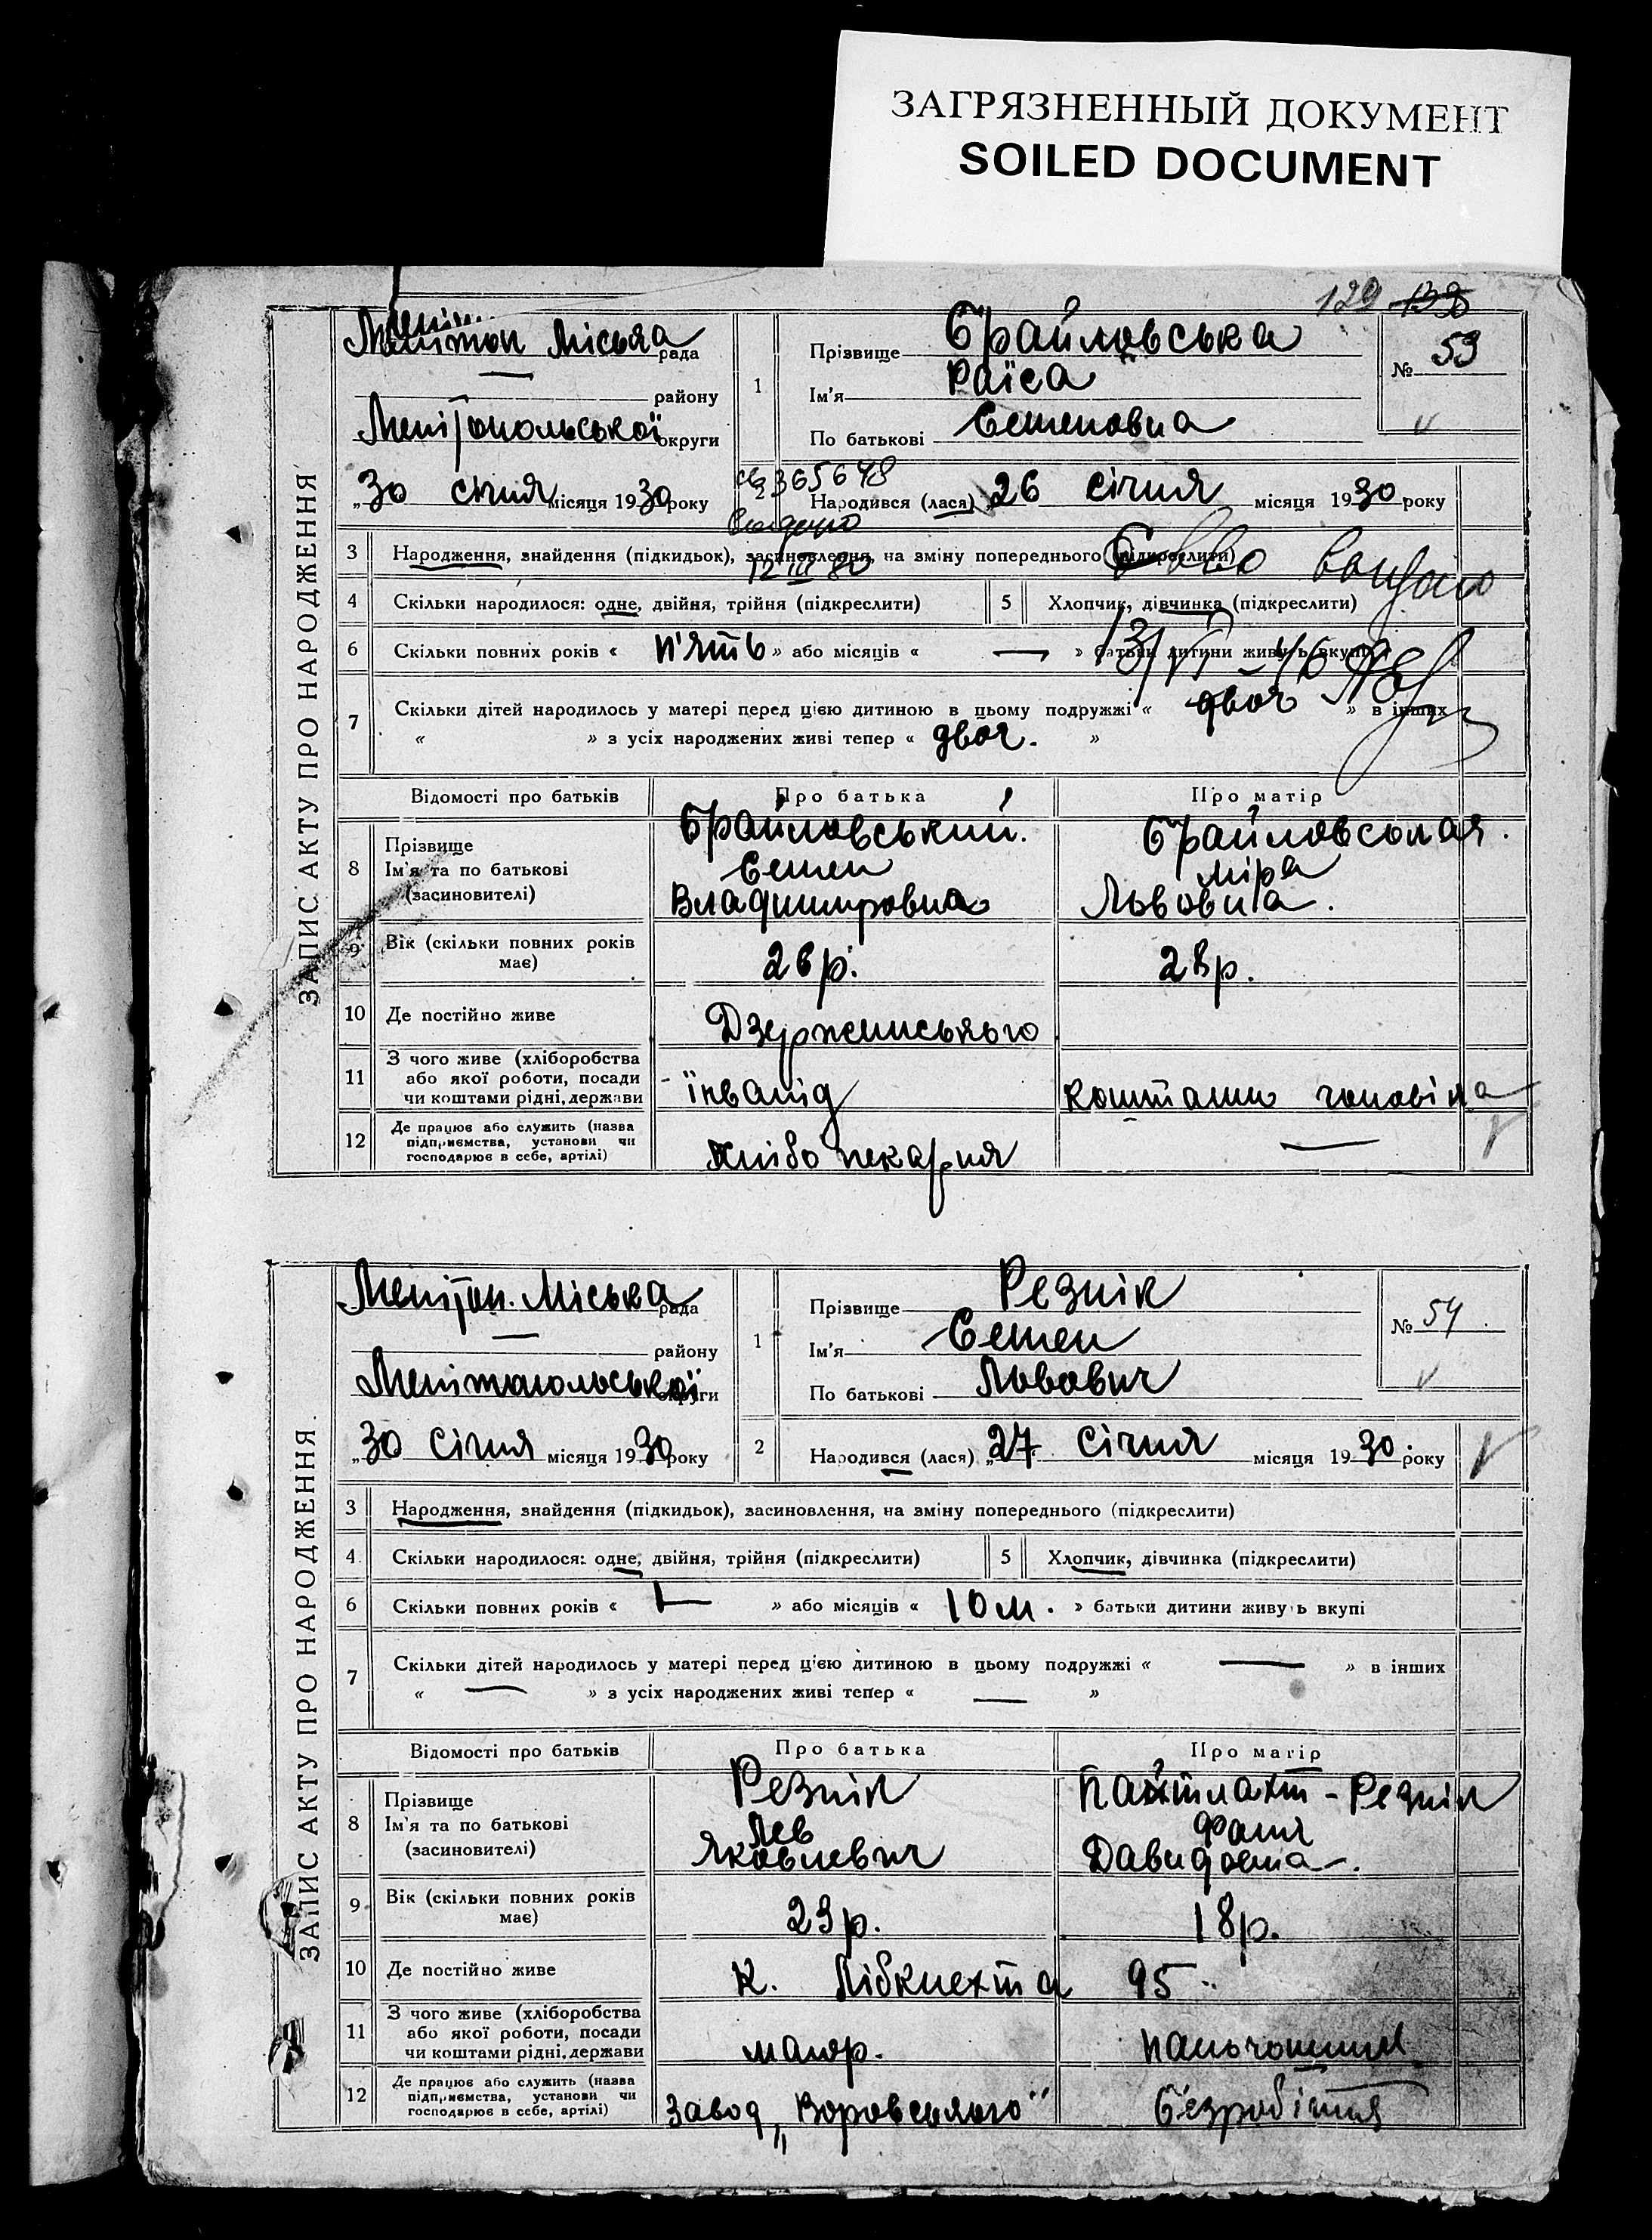 ЗАГРЯЗНЕННЫЙ ДОКУМЕНТ
SOILED DOCUMENT
129 138
ЗАПИС АКТУ ПРО НАРОДЖЕННЯ
Меліпоп Міська рада
— району
Мелітопольської округи
„30 січня місяця 1930 року
1
Прізвище Брайловська
Ім'я Раїса
По батькові Семеновна
№ 53
365648
Народився (лася) „26 січня місяця 1930 року
Видано
12 III 80
3 Народження, знайдення (підкидьок), засиновлення, на зміну попереднього (підкреслити)
видано
4 Скільки народилося: одне, двійня, трійня (підкреслити) 5 Хлопчик, дівчинка (підкреслити)
6 Скільки повних років « п'ять » або місяців « — » батьки дитини живуть вкупі
7 Скільки дітей народилось у матері перед цією дитиною в цьому подружжі « двоя » в інших
« » з усіх народжених живі тепер « двоя. »
Відомості про батьків Про батька Про матір
8 Прізвище Ім'я та по батькові (засиновителі)
Брайловський. Брайловськая.
Семен Міра
Владимировна Львовна.
9 Вік (скільки повних років має) 26 р. 28 р.
10 Де постійно живе Дзержинського
11 З чого живе (хліборобства або якої роботи, посади чи коштами рідні, держави інвалід коштами чоловіка
12 Де працює або служить (назва підприємства, установи чи господарює в себе, артілі) хлібопекарня —
ЗАПИС АКТУ ПРО НАРОДЖЕННЯ.
Мелітоп. Міська рада
— району
Мелітопольської округи
„30 січня місяця 1930 року
1
Прізвище Резнік
Ім'я Семен
По батькові Львович
№ 54
2 Народився (лася) „27 січня місяця 1930 року
3 Народження, знайдення (підкидьок), засиновлення, на зміну попереднього (підкреслити)
4 Скільки народилося: одне, двійня, трійня (підкреслити) 5 Хлопчик, дівчинка (підкреслити)
6 Скільки повних років « — » або місяців « 10 м. » батьки дитини живуть вкупі
7 Скільки дітей народилось у матері перед цією дитиною в цьому подружжі « — » в інших
« — » з усіх народжених живі тепер « — »
Відомості про батьків Про батька Про матір
8 Прізвище Ім'я та по батькові (засиновителі)
Резнік Резнік
Лев Фаня
Яковлевич Давидовна.
9 Вік (скільки повних років має) 23 р. 18 р.
10 Де постійно живе К. Лібкнехта 95
11 З чого живе (хліборобства або якої роботи, посади чи коштами рідні, держави
12 Де працює або служить (назва підприємства, установи чи господарює в себе, артілі) Завод „Воровського" безробітня